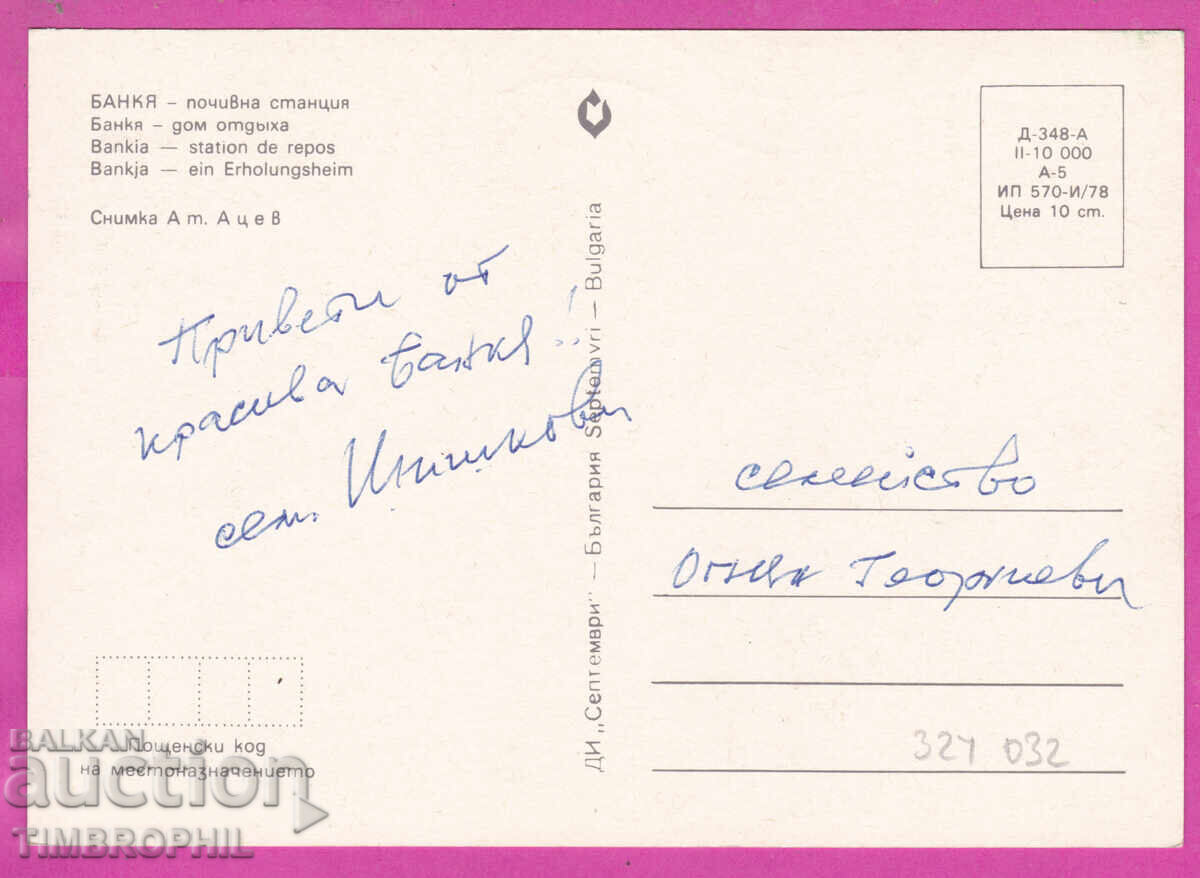 БАНКЯ – почивна станция
Банкя – дом отдыха
Bankia — station de repos
Bankja — ein Erholungsheim
Снимка Ат. Ацев
Привети от
красива Банкя!!
сем. Инишкови
ДИ „Септември" — България Septemvri — Bulgaria
Д-348-А
II-10 000
А-5
ИП 570-И/78
Цена 10 ст.
семейство
Огнян Георгиеви
Пощенски код
на местоназначението
324 032
BALKAN
auction
TIMBROPHIL